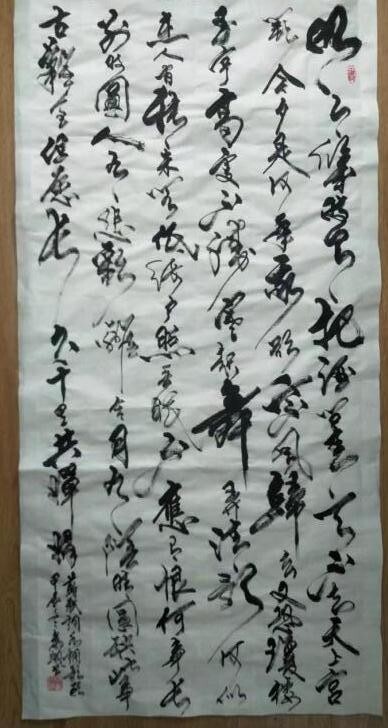 明月幾時有把酒問青天不知天上宮
闕今夕是何年我欲乘風歸去又恐瓊楼
玉宇高處不勝寒起舞弄清影何似
在人間轉朱閣低綺户照無眠不應有恨何事長
别时圓人有悲歡離合月有陰晴圓缺此事
古難全但愿人長久千里共嬋娟
蘇軾詞水調歌頭